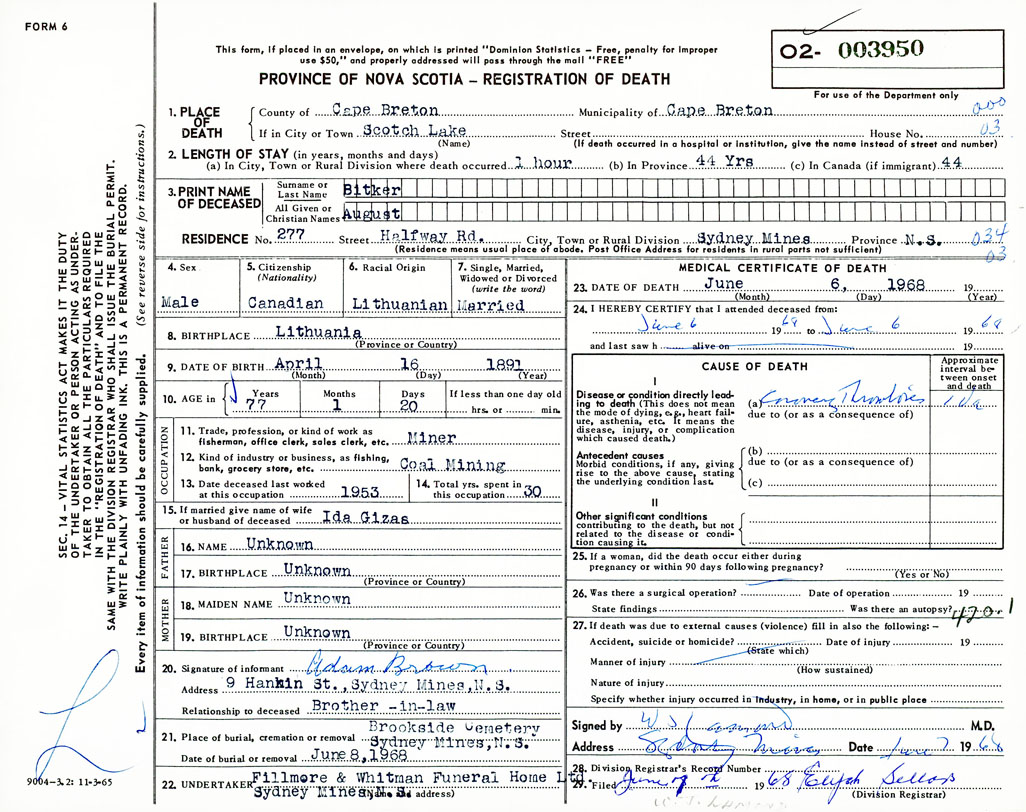 FORM 6
This form, if placed in an envelope, on which is printed "Dominion Statistics – Free, penalty for improper
use $50," and properly addressed will pass through the mail "FREE"
PROVINCE OF NOVA SCOTIA – REGISTRATION OF DEATH
02- 003950
For use of the Department only
SEC. 14 – VITAL STATISTICS ACT MAKES IT THE DUTY
OF THE UNDERTAKER OR PERSON ACTING AS UNDER-
TAKER TO OBTAIN ALL THE PARTICULARS REQUIRED
IN THE "REGISTRATION OF DEATH" AND TO FILE THE
SAME WITH THE DIVISION REGISTRAR WHO SHALL ISSUE THE BURIAL PERMIT.
WRITE PLAINLY WITH UNFADING INK. THIS IS A PERMANENT RECORD.
Every item of information should be carefully supplied. (See reverse side for instructions.)
1. PLACE OF DEATH
County of Cape Breton Municipality of Cape Breton 000
If in City or Town Scotch Lake Street House No. 03
(Name) (If death occurred in a hospital or institution, give the name instead of street and number)
2. LENGTH OF STAY (in years, months and days)
(a) In City, Town or Rural Division where death occurred 1 hour (b) In Province 44 Yrs (c) In Canada (if immigrant) 44
3. PRINT NAME OF DECEASED
Surname or Last Name Bitker
All Given or Christian Names August
RESIDENCE No. 277 Street Halfway Rd. City, Town or Rural Division Sydney Mines Province N.S. 034
(Residence means usual place of abode. Post Office Address for residents in rural parts not sufficient) 03
4. Sex
Male
5. Citizenship (Nationality)
Canadian
6. Racial Origin
Lithuanian
7. Single, Married, Widowed or Divorced (write the word)
Married
8. BIRTHPLACE Lithuania
(Province or Country)
9. DATE OF BIRTH April 16 1891
(Month) (Day) (Year)
10. AGE in Years Months Days If less than one day old
77 1 20 hrs. or min.
OCCUPATION
11. Trade, profession, or kind of work as
fisherman, office clerk, sales clerk, etc. Miner
12. Kind of industry or business, as fishing,
bank, grocery store, etc. Coal Mining
13. Date deceased last worked
at this occupation 1953
14. Total yrs. spent in
this occupation 30
15. If married give name of wife
or husband of deceased Ida Gizas
FATHER
16. NAME Unknown
17. BIRTHPLACE Unknown
(Province or Country)
MOTHER
18. MAIDEN NAME Unknown
19. BIRTHPLACE Unknown
(Province or Country)
20. Signature of informant Adam Brown
Address 9 Hankin St., Sydney Mines, N.S.
Relationship to deceased Brother -in-law
Brookside Cemetery
21. Place of burial, cremation or removal Sydney Mines, N.S.
Date of burial or removal June 8, 1968
22. UNDERTAKER Fillmore & Whitman Funeral Home Ltd.
Sydney Mines, N.S. (Name and address)
9004-3.2: 11-3-65
MEDICAL CERTIFICATE OF DEATH
23. DATE OF DEATH June 6, 1968 19
(Month) (Day) (Year)
24. I HEREBY CERTIFY that I attended deceased from:
June 6 1968 to June 6 1968
and last saw h alive on 19
CAUSE OF DEATH
Approximate interval between onset and death
I
Disease or condition directly lead-
ing to death (This does not mean
the mode of dying, e.g., heart fail-
ure, asthenia, etc. It means the
disease, injury, or complication
which caused death.)
(a) Coronary Thrombosis
due to (or as a consequence of)
Antecedent causes
Morbid conditions, if any, giving
rise to the above cause, stating
the underlying condition last.
(b)
due to (or as a consequence of)
(c)
II
Other significant conditions
contributing to the death, but not
related to the disease or condi-
tion causing it.
25. If a woman, did the death occur either during
pregnancy or within 90 days following pregnancy?
(Yes or No)
26. Was there a surgical operation? Date of operation 19
State findings Was there an autopsy? 420.1
27. If death was due to external causes (violence) fill in also the following: –
Accident, suicide or homicide? Date of injury 19
(State which)
Manner of injury
(How sustained)
Nature of injury
Specify whether injury occurred in industry, in home, or in public place
Signed by M.D.
Address Sydney Mines Date June 7 1968
28. Division Registrar's Record Number
29. Filed June 7th 1968 Elijah Sellars
(Division Registrar)